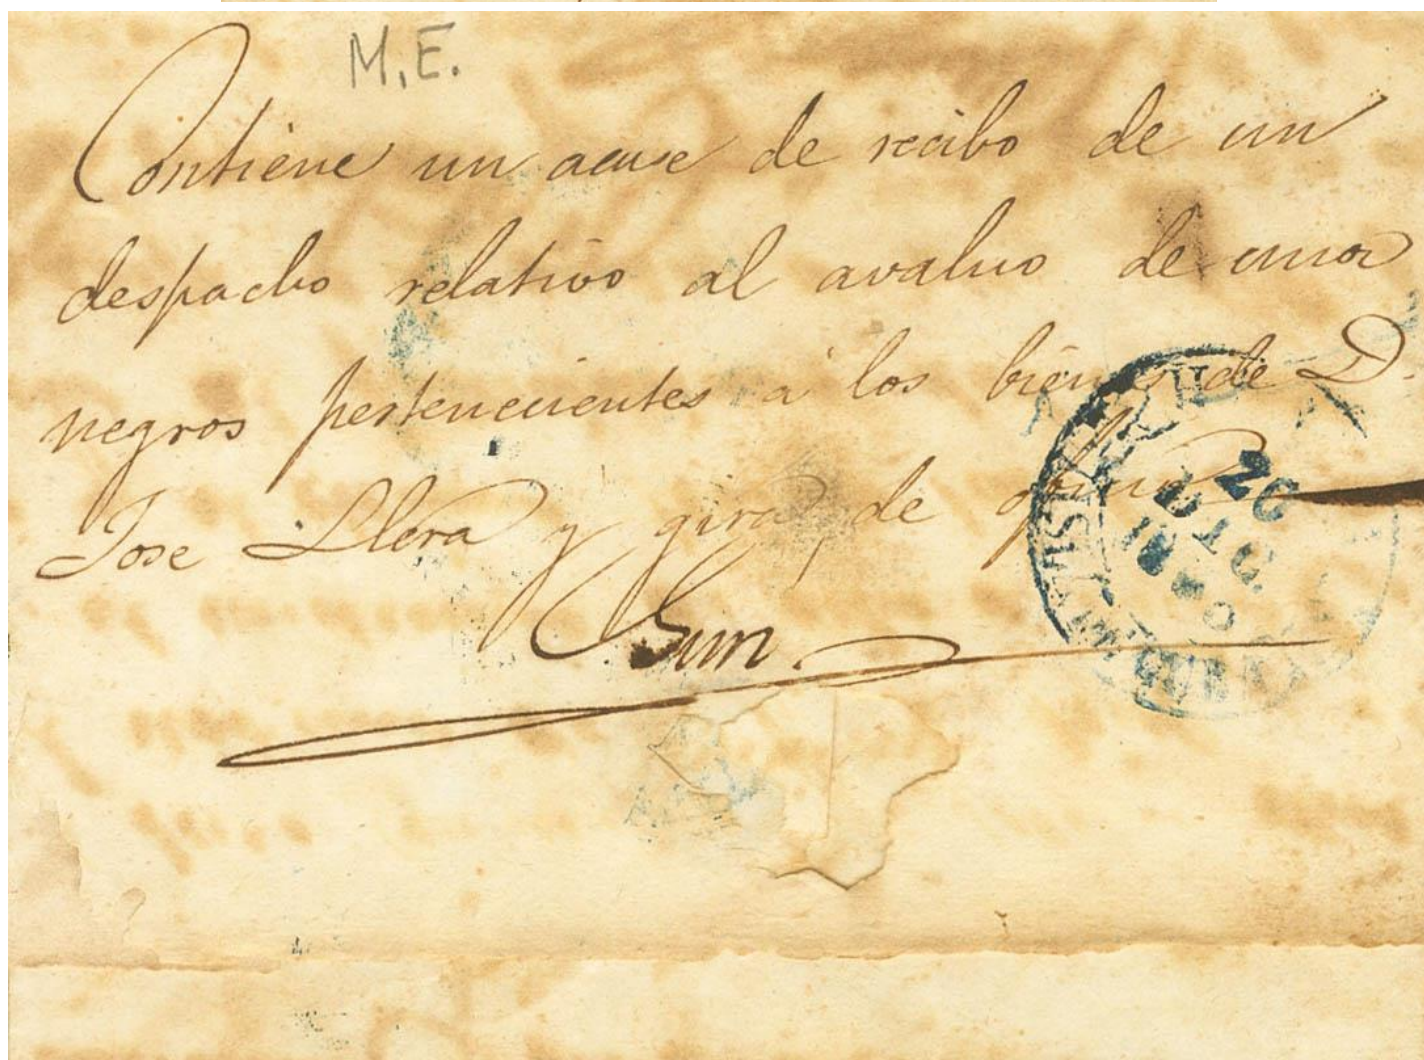 M.E.
Contiene un acuse de recibo de un
despacho relativo al avaluo de unos
negros pertenecientes a los bienes de D.
Jose Llera y gira de oficio
20
DIC